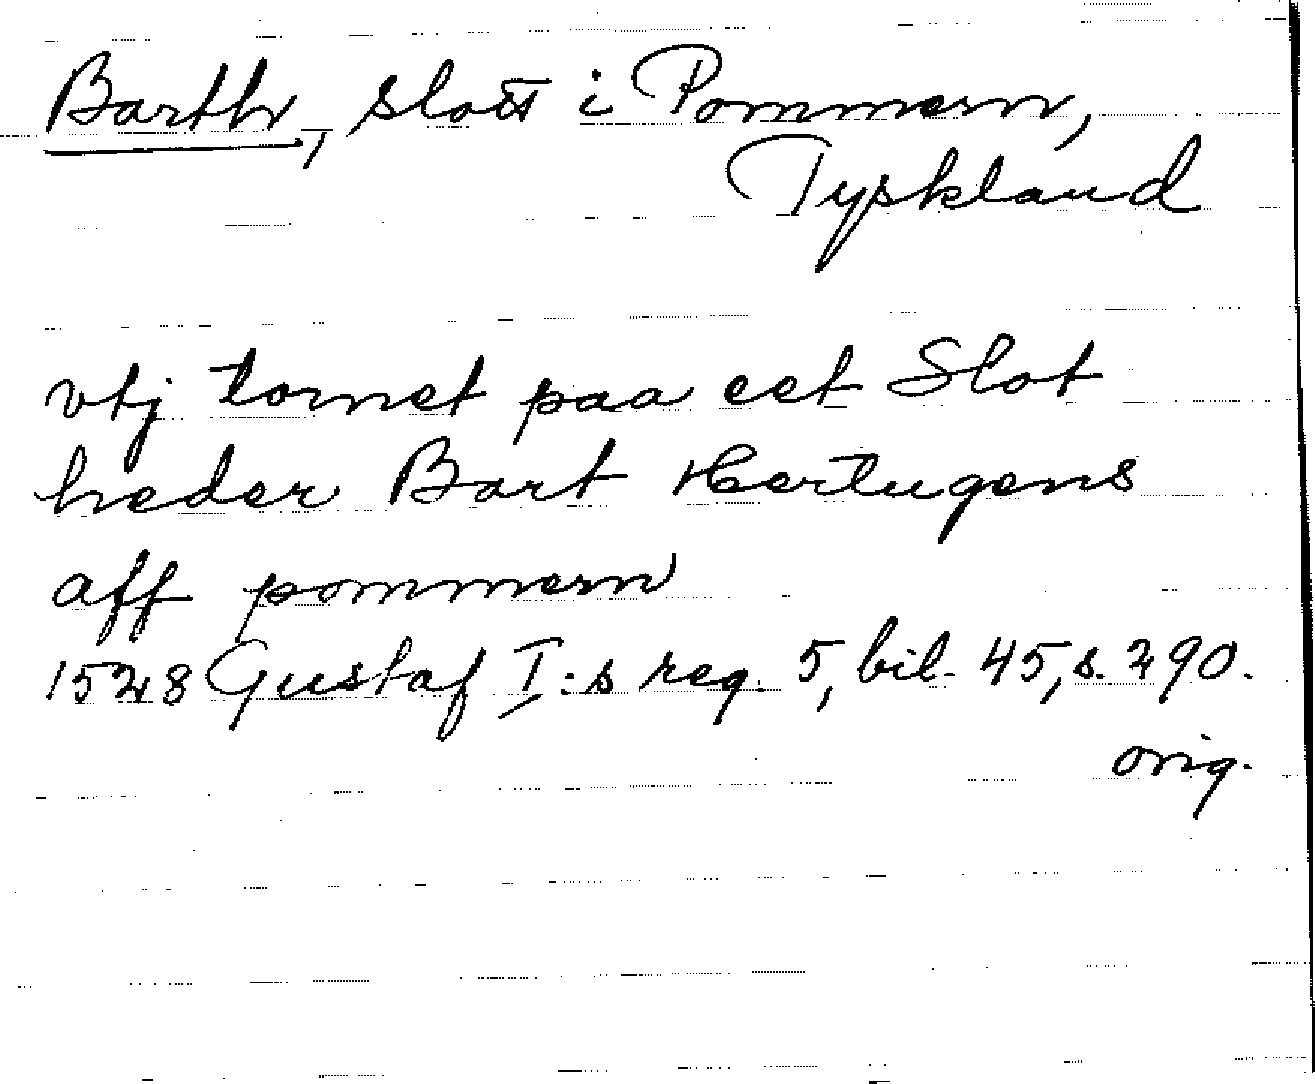 Barth, slott i Pommern,
Tyskland
vtj tornet paa eet Slot
heder Bart Hertugens
aff pommern
1528 Gustaf I:s reg. 5, bil. 45, s. 290.
orig.